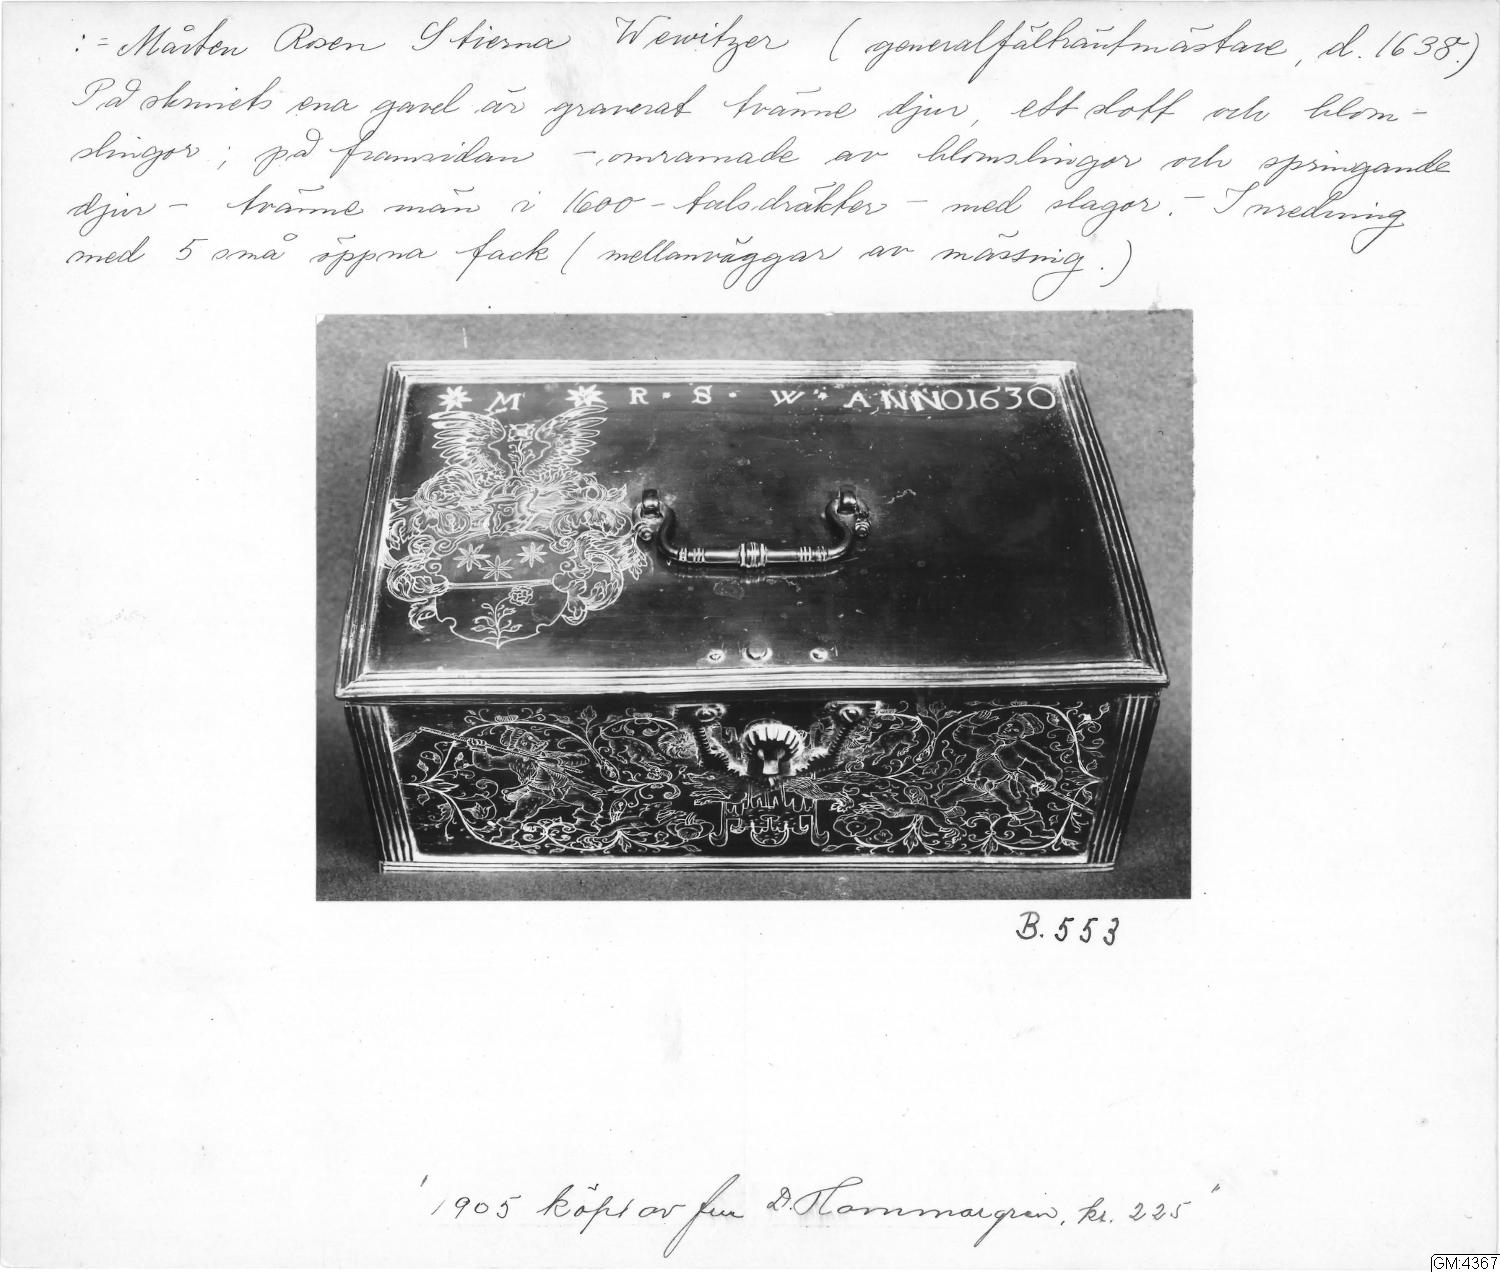 := Mårten Rosen Stierna Wewitzer (generalfälttäutmästare, d. 1638.)
På skrinets ena gavel är graverat tvänne djur, ett slott och blom-
slingor; på framsidan - omramade av blomslingor och springande
djur - tvänne män i 1600-talsdräkter - med slagor. - Inredning
med 5 små öppna fack (mellanväggar av mässing.)
M R · S · W · ANNO 1630
B. 553
"1905 köpt av fru D. Hammargren, kr. 225"
GM:4367